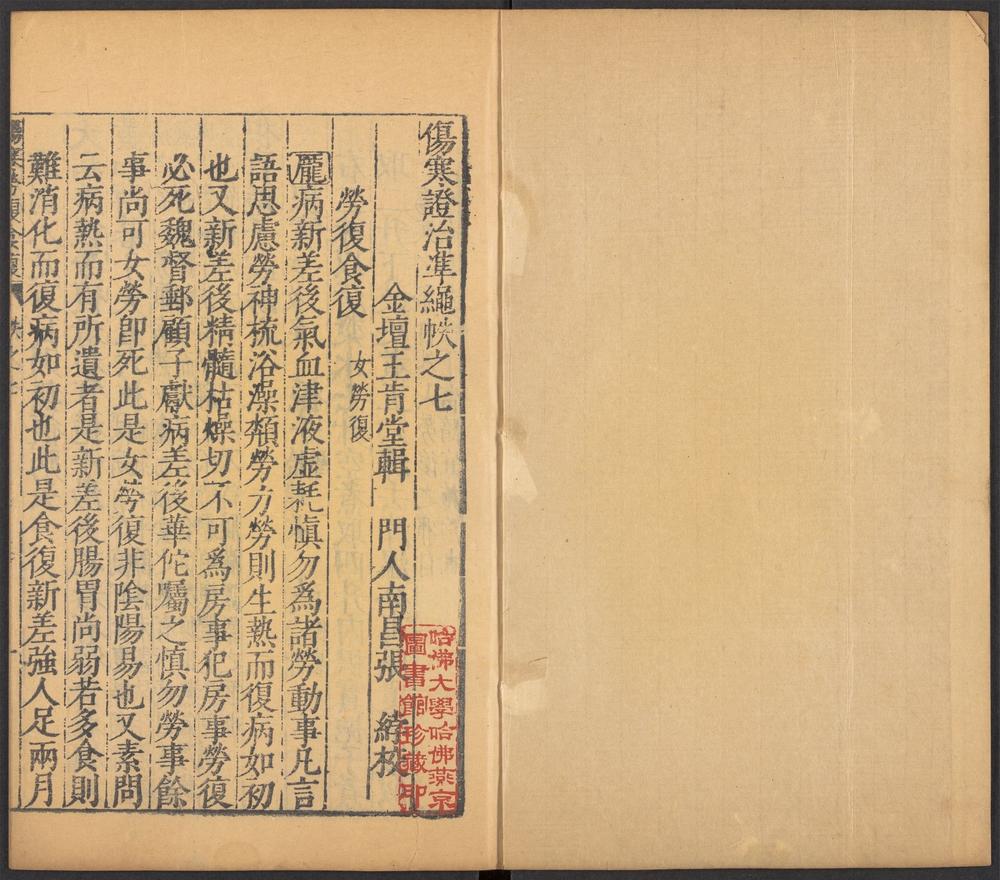 傷寒證治準繩帙之七
金壇王肯堂輯 門人南昌張 綍校
勞復食復 女勞復
龐病新差後氣血津液虛耗慎勿爲諸勞動事凡言
語思慮勞神梳浴澡頮勞力勞則生熱而復病如初
也又新差後精髓枯燥切不可爲房事犯房事勞復
必死魏督郵顧子獻病差後華佗囑之慎勿勞事餘
事尚可女勞卽死此是女勞復非陰陽易也又素問
云病熱而有所遺者是新差後腸胃尚弱若多食則
難消化而復病如初也此是食復新差強人足兩月
哈佛大學哈佛燕京
圖書館珍藏印